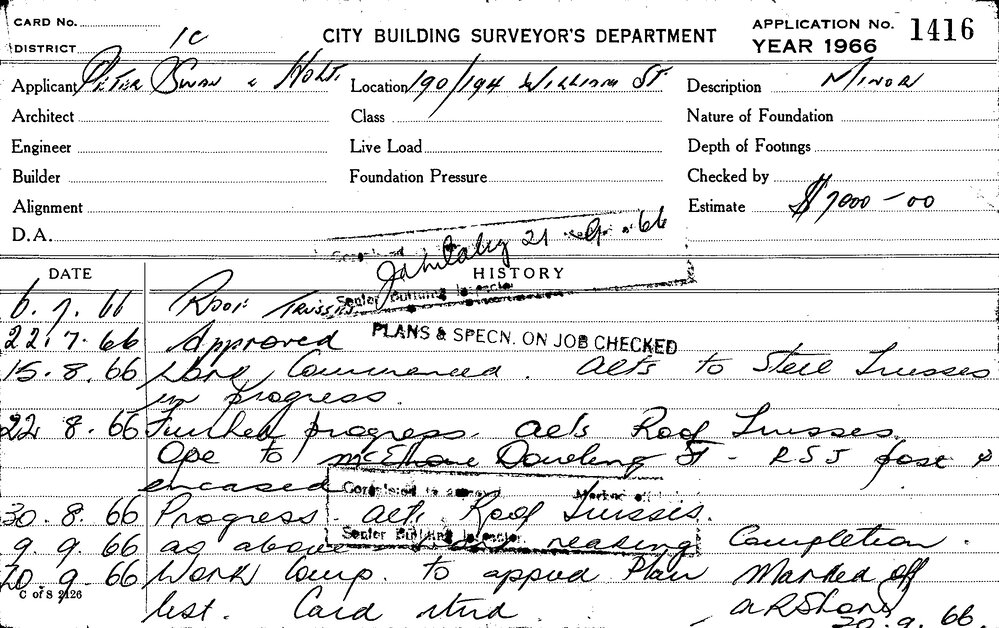 CARD No.
DISTRICT 1C
CITY BUILDING SURVEYOR'S DEPARTMENT
APPLICATION No. 1416
YEAR 1966
Applicant Peter Swan & Holt. Location 190/194 William St Description Minor
Architect Class Nature of Foundation
Engineer Live Load Depth of Footings
Builder Foundation Pressure Checked by
Alignment Estimate $7000-00
D.A.
21 9 66
DATE HISTORY
6.7.66 Roof Trusses
Senior Building Inspector
22.7.66 Approved
PLANS & SPECN. ON JOB CHECKED
15.8.66 Work Commenced. Alts to Steel Trusses
in progress.
22.8.66 Further progress Alts Roof Trusses.
Ope to McElhone Dowling St - RSJ &
encased
Completed to approval Marked off
30.8.66 Progress alts Roof Trusses.
Senior Building Inspector
9.9.66 as above nearing Completion.
20.9.66 Work Comp. to approd Plan Marked off
C of S 2126
list. Card
20.9.66.